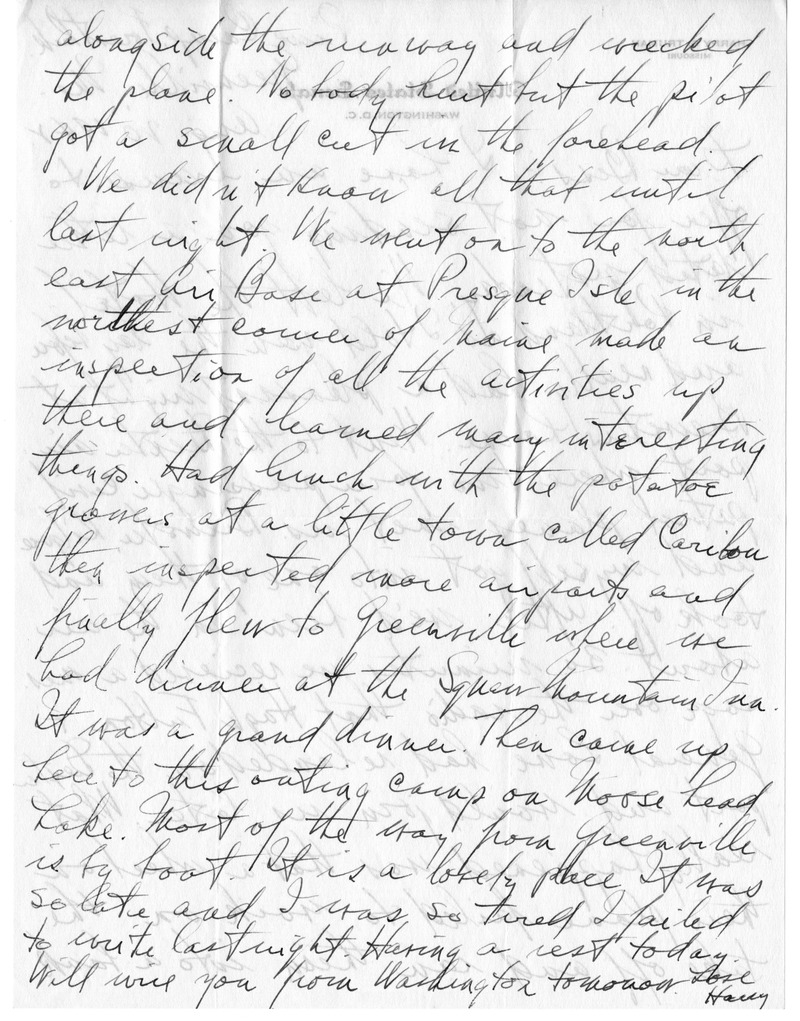 alongside the runway and wrecked
the plane. No body hurt but the pilot
got a small cut in the forehead.
We didn't know all that until
last night. We went on to the north
east Air Base at Presque Isle in the
northest corner of Maine made an
inspection of all the activities up
there and learned many interesting
things. Had lunch with the potatoe
growers at a little town called Caribou
then inspected more airports and
finally flew to Greenville where we
had dinner at the Squaw Mountain Inn.
It was a grand dinner. Then came up
here to this outing camp on Moose head
Lake. Most of the way from Greenville
is by boat. It is a lovely place. It was
so late and I was so tired I failed
to write last night. Having a rest today.
Will wire you from Washington tomorrow. Love
Harry